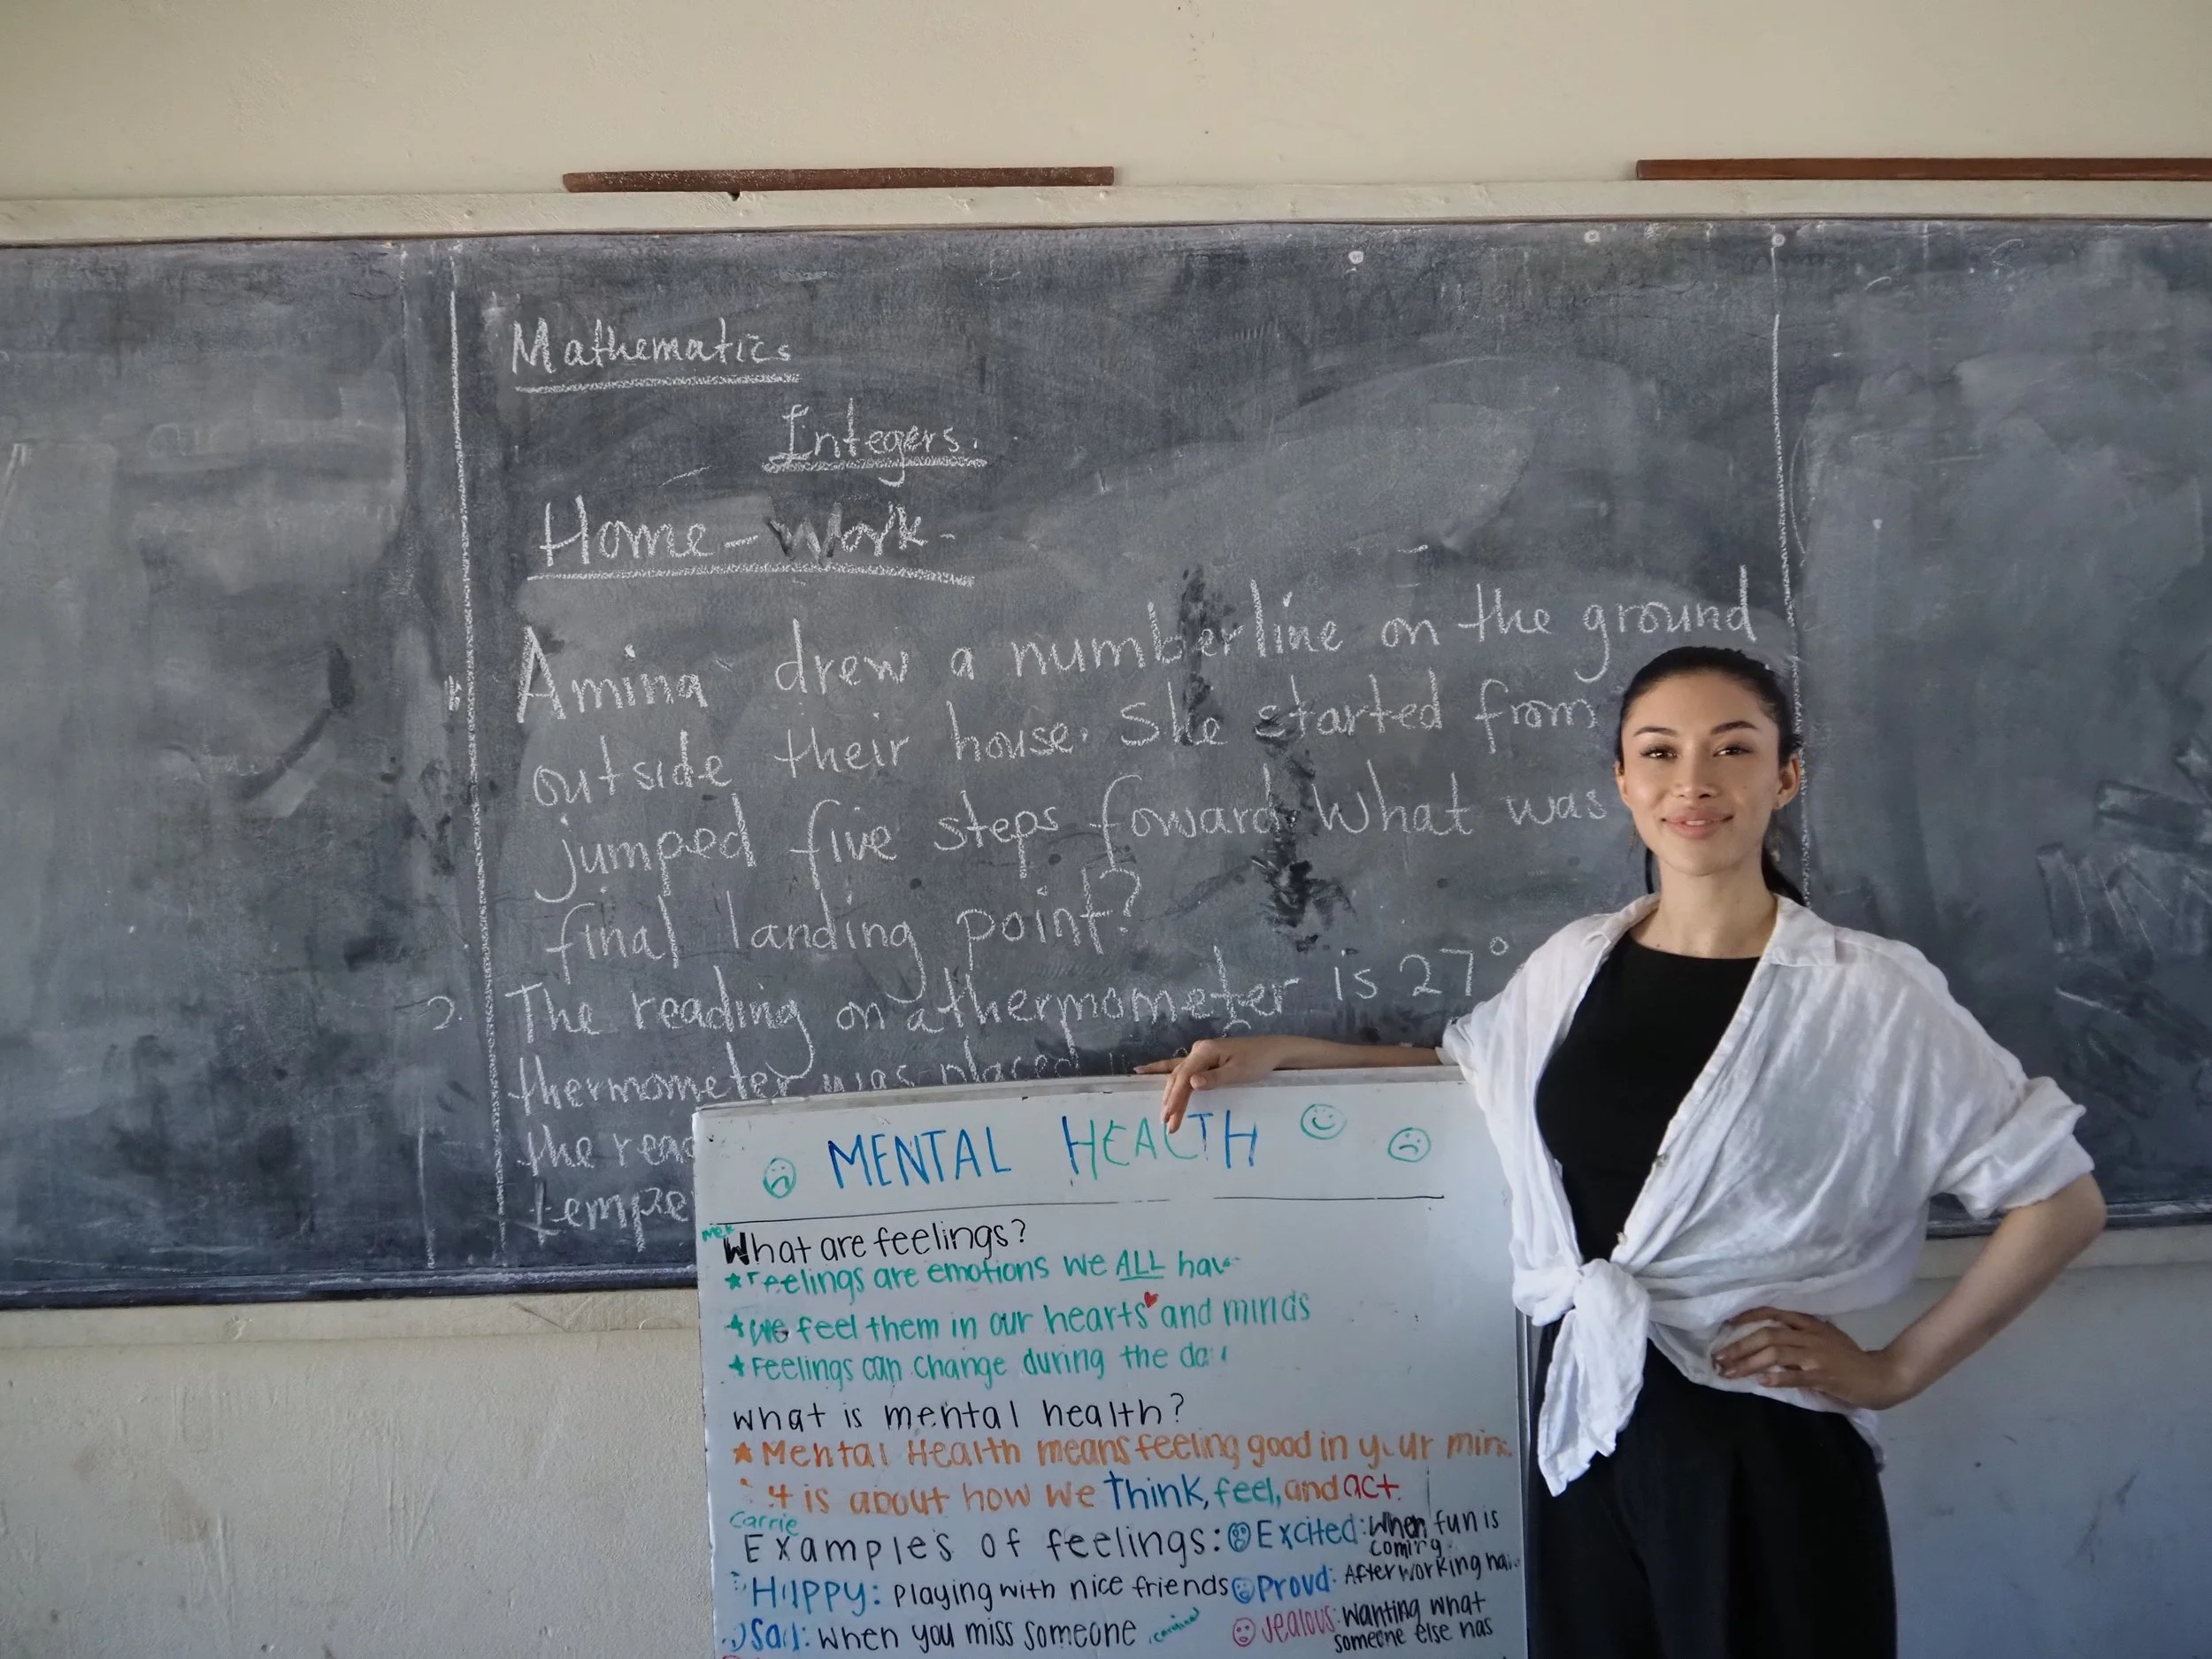 Mathematics
Integers.
Home-Work.
Amina drew a numberline on the ground
outside their house. She started from
jumped five steps foward. What was
final landing point?
2. The reading on a thermometer is 27°
thermometer was placed
the
MENTAL HEALTH
What are feelings?
*Feelings are emotions we ALL hav
*We feel them in our hearts and minds
*Feelings can change during the da
what is mental health?
*Mental Health means feeling good in your min
is about how we Think, feel, and act.
Carrie
Examples of feelings:
Happy: Playing with nice friends
Sad: when you miss someone
Excited: When fun is
coming.
Proud: After working ha
Jealous: Wanting what
someone else has